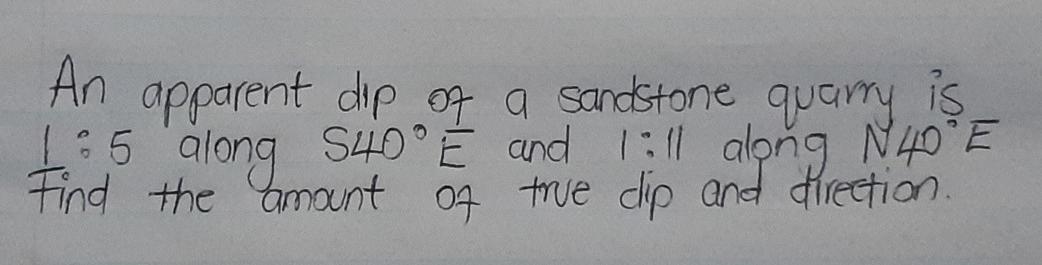 An apparent dip of a sandstone quarry is
1:5 along S40°E and 1:11 along N40°E
Find the amount of true dip and direction.